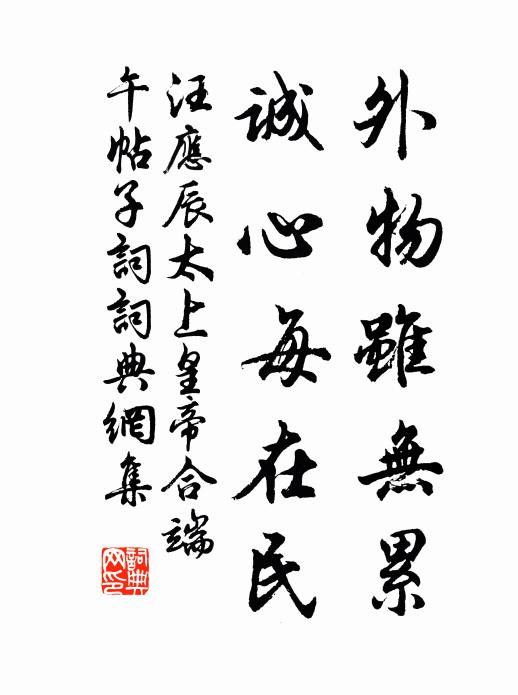 外物雖無累
誠心每在民
汪應辰太上皇帝合端
午帖子詞詞典網集
詞典
网印